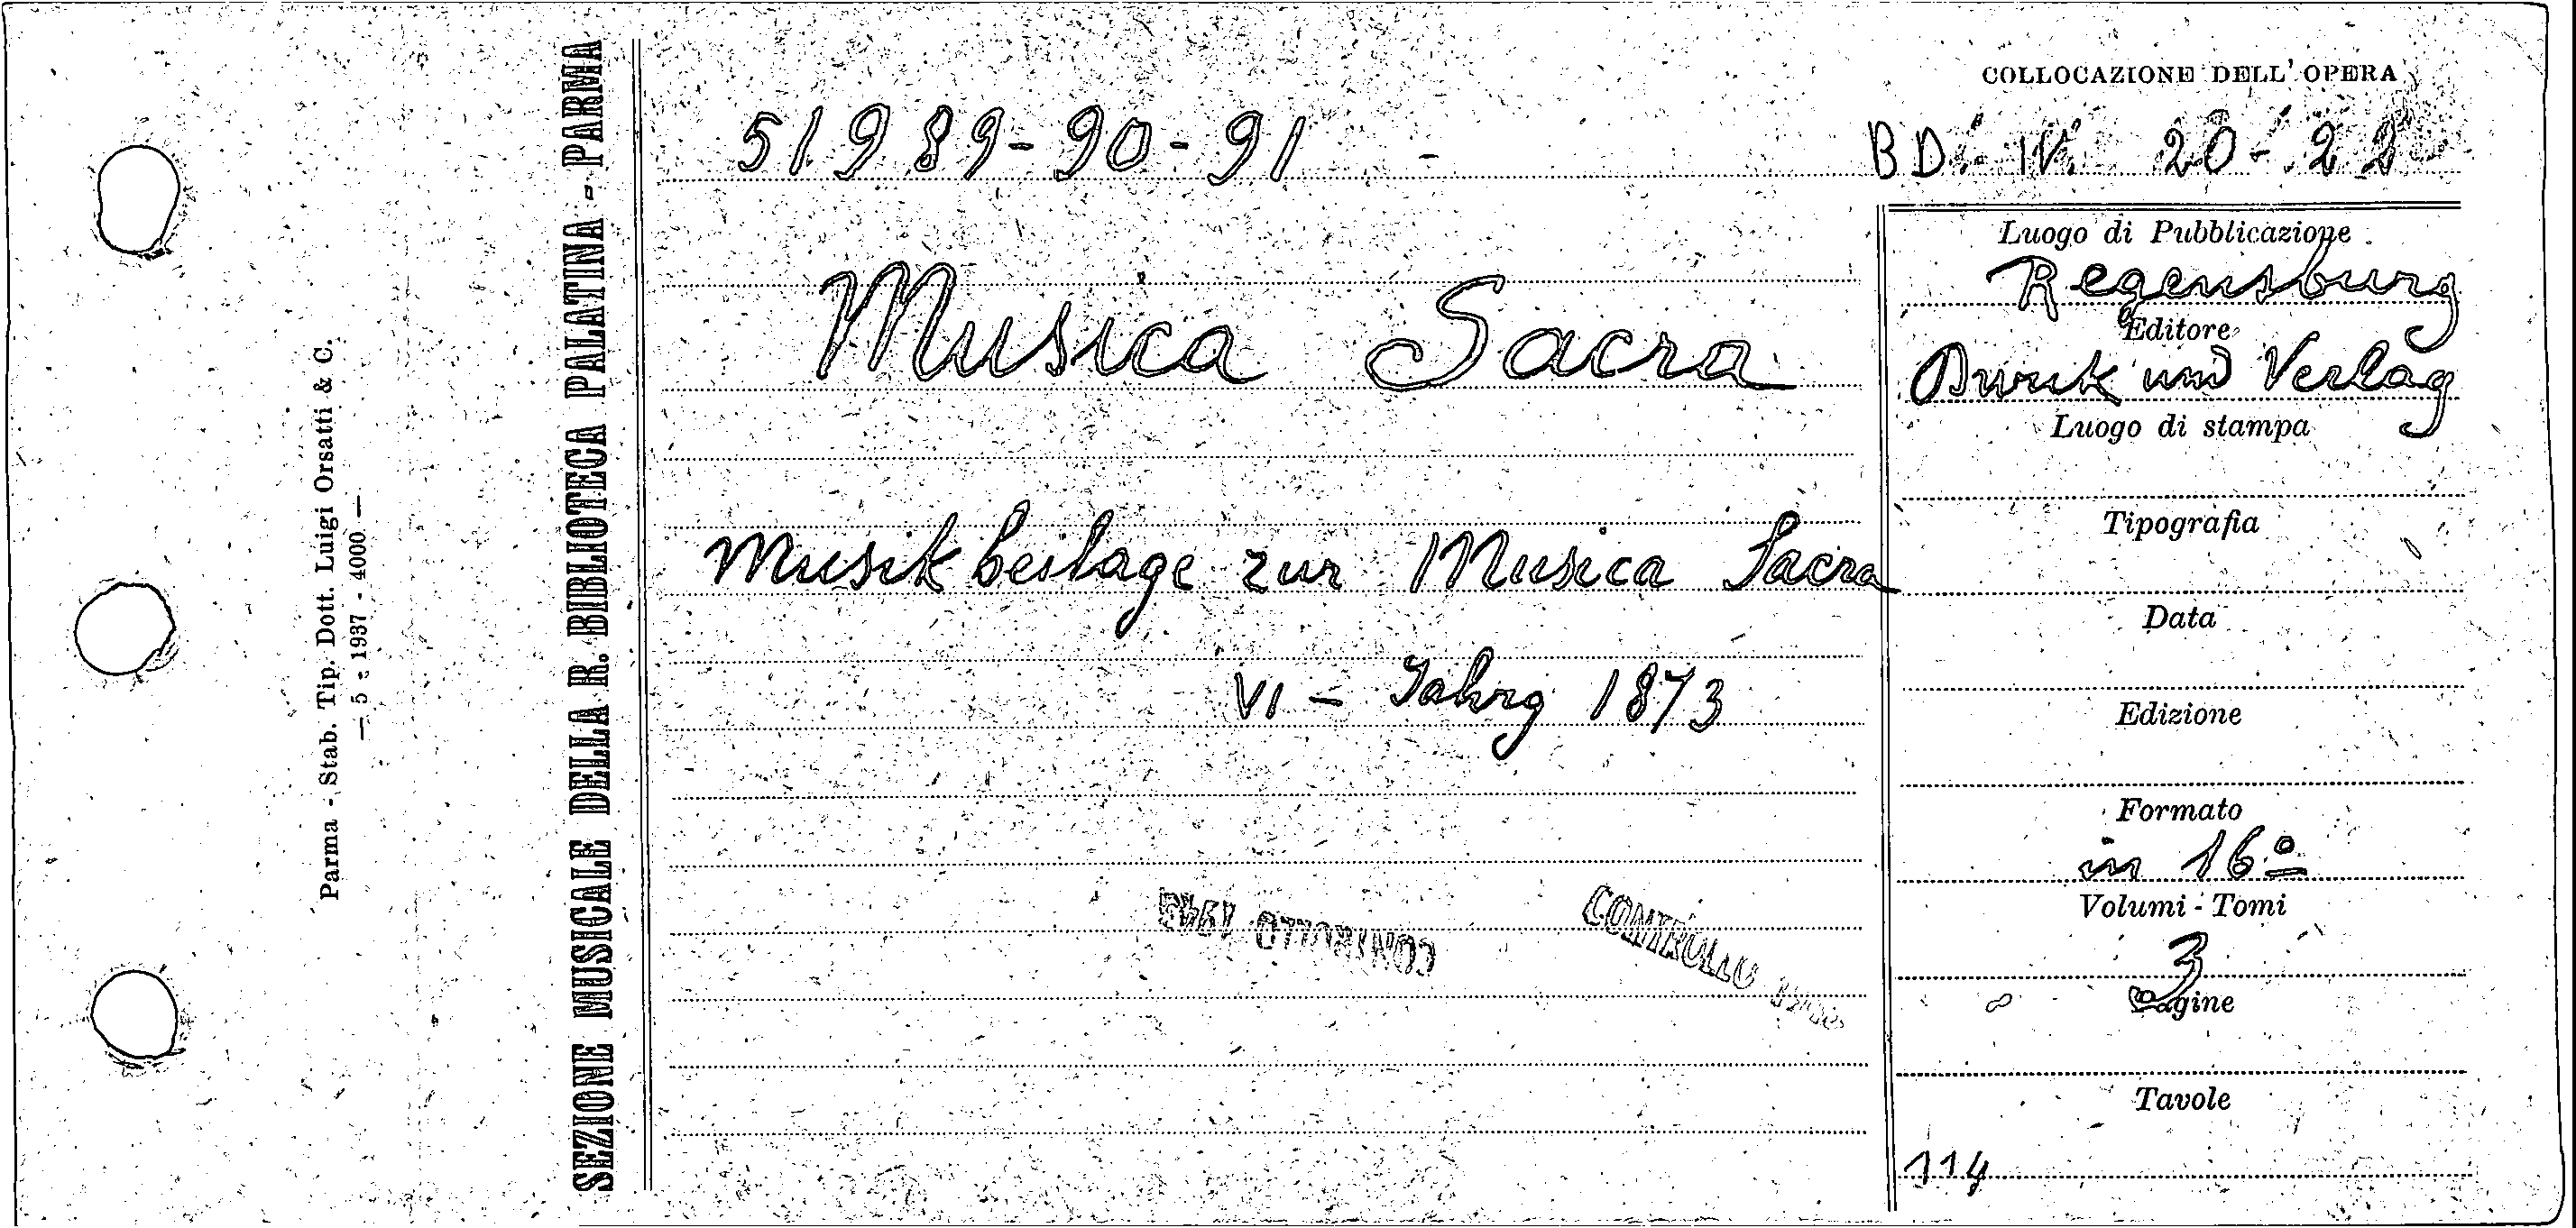 Parma - Stab. Tip. Dott. Luigi Orsatti & C.
— 5 - 1937 - 4000 —
SEZIONE MUSICALE DELLA R. BIBLIOTECA PALATINA - PARMA
COLLOCAZIONE DELL' OPERA
51989-90-91 -
BD. IV. 20-22
Musica Sacra
Musikbeilage zur Musica Sacra
VI - Jahrg 1873
CONTROLLO 1943
CONTROLLO
Luogo di Pubblicazione
Regensburg
Editore
Druck und Verlag
Luogo di stampa
Tipografia
Data
Edizione
Formato
in 16º
Volumi - Tomi
3
Pagine
Tavole
114